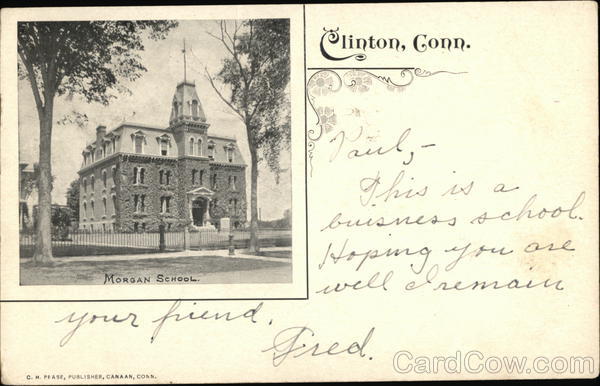 Clinton, Conn.
Paul,-
This is a
buisness school.
Hoping you are
well I remain
MORGAN SCHOOL.
your friend.
Fred.
C. H. PEASE, PUBLISHER, CANAAN, CONN.
CardCow.com